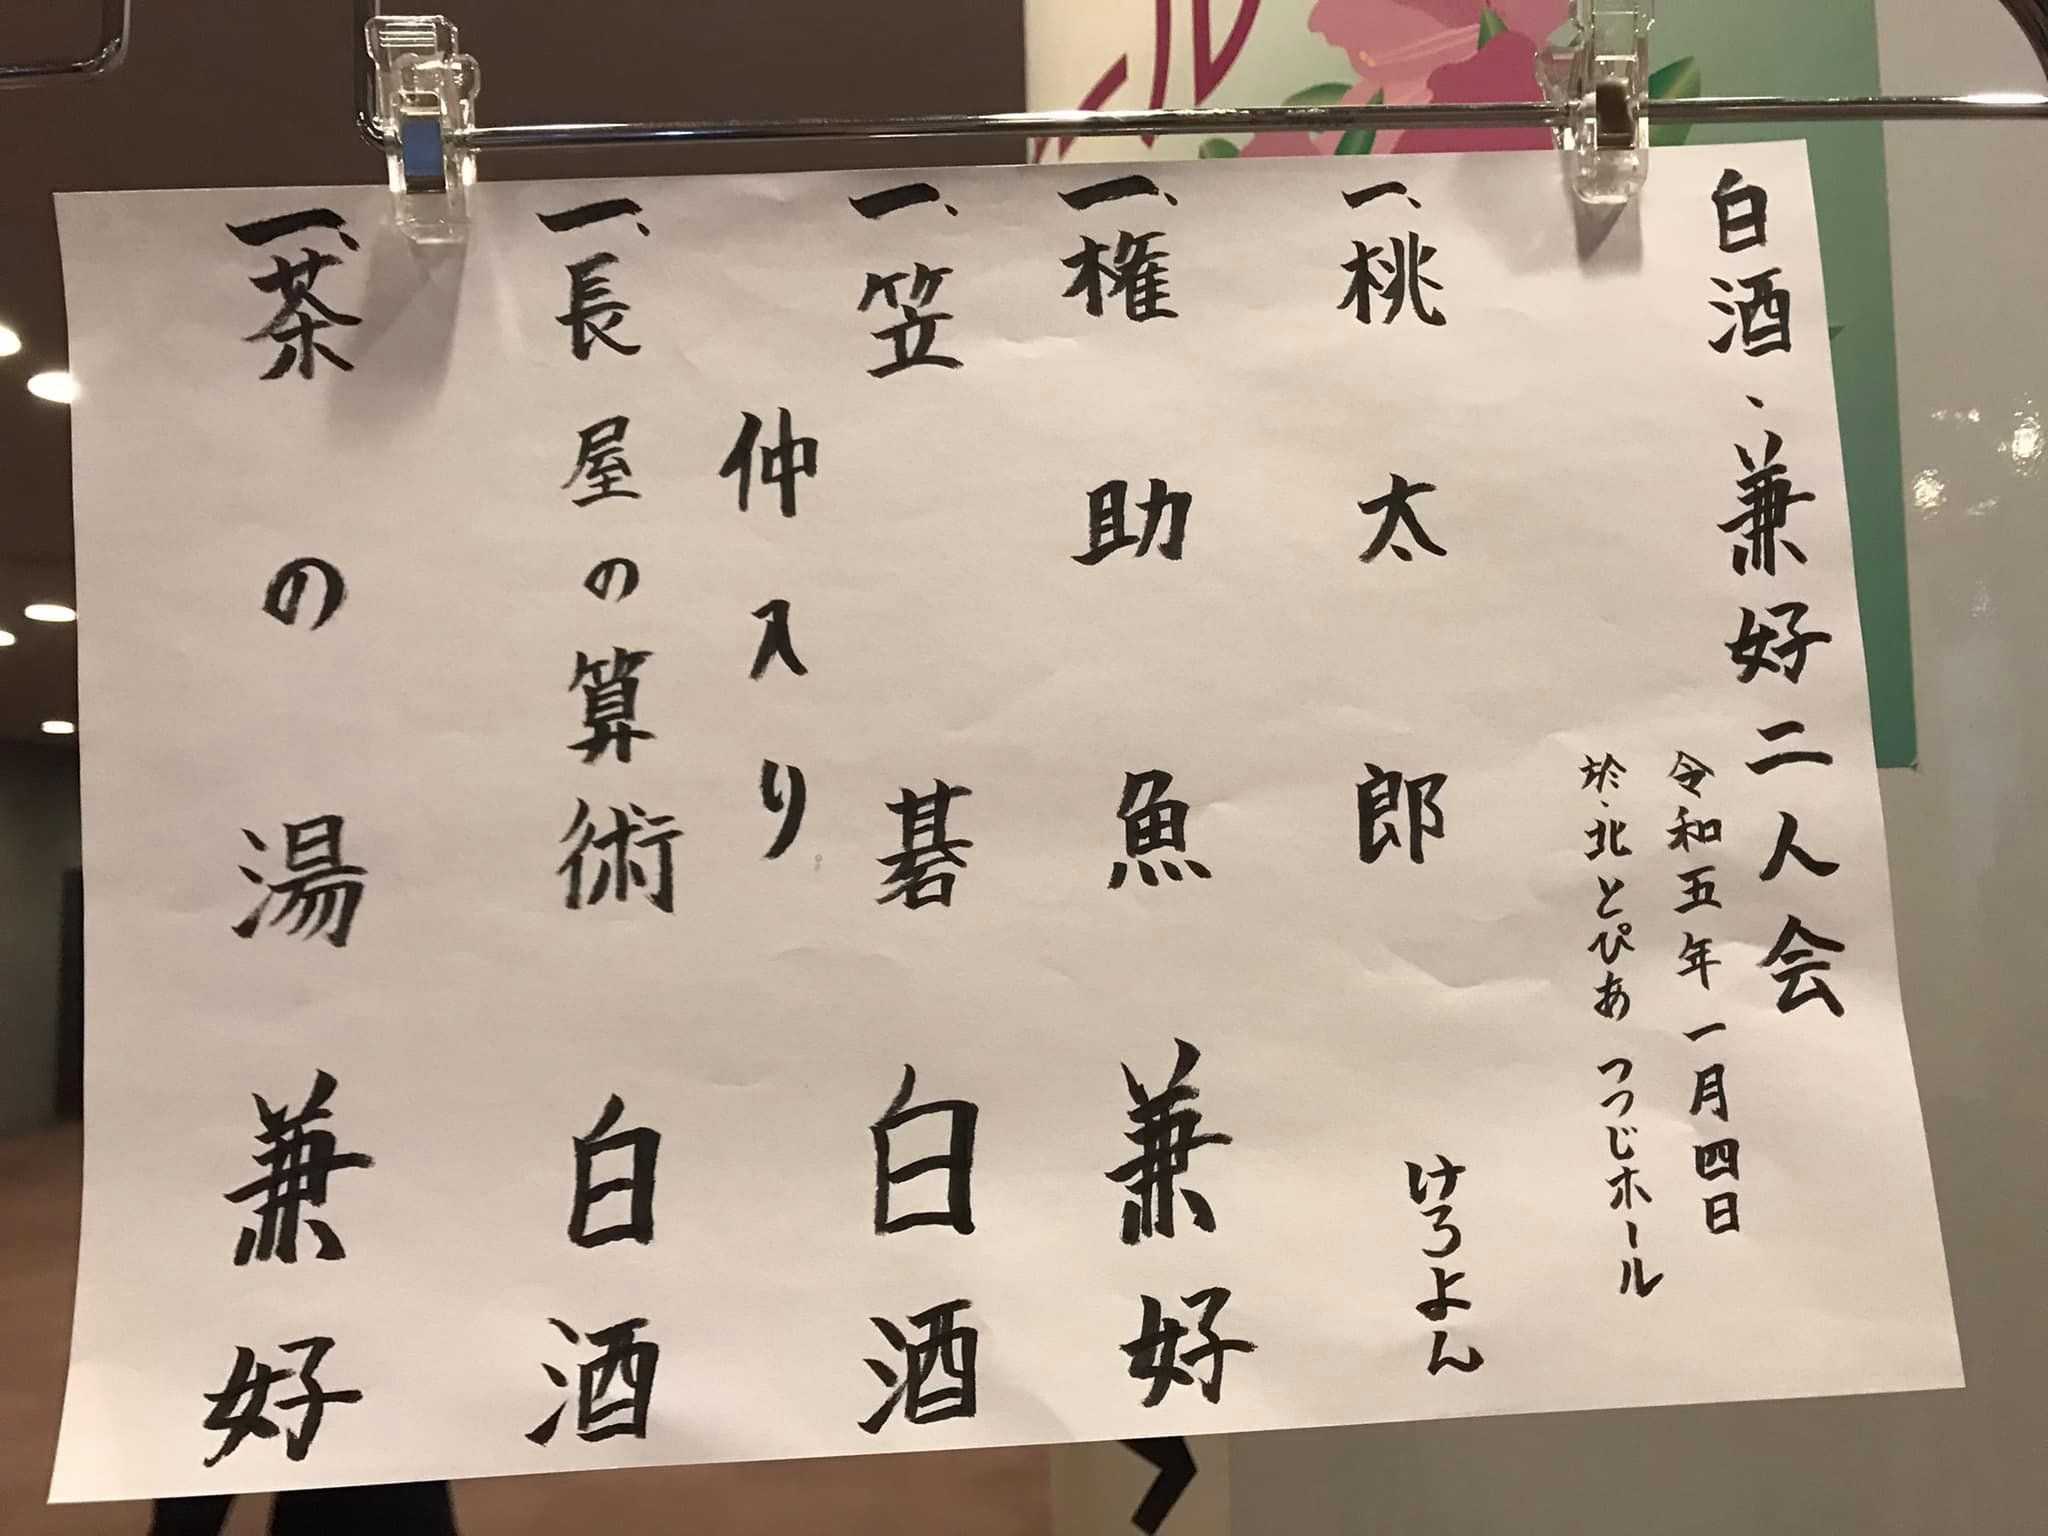 白酒、兼好二人会
令和五年一月四日
於・北とぴあ つつじホール
一、桃太郎 けろよん
一、権助魚 兼好
一、笠碁 白酒
仲入り
一、長屋の算術 白酒
一、茶の湯 兼好
ール